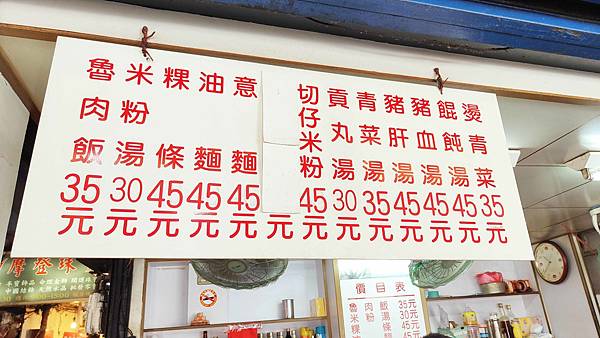 魯肉飯35元
米粉湯30元
粿條45元
油麵45元
意麵45元
元
切仔米粉45元
貢丸湯30元
青菜湯35元
豬肝湯45元
豬血湯45元
餛飩湯45元
燙青菜35元
摩登珠
價目表
魯肉飯35元
米粉湯30元
粿條45元